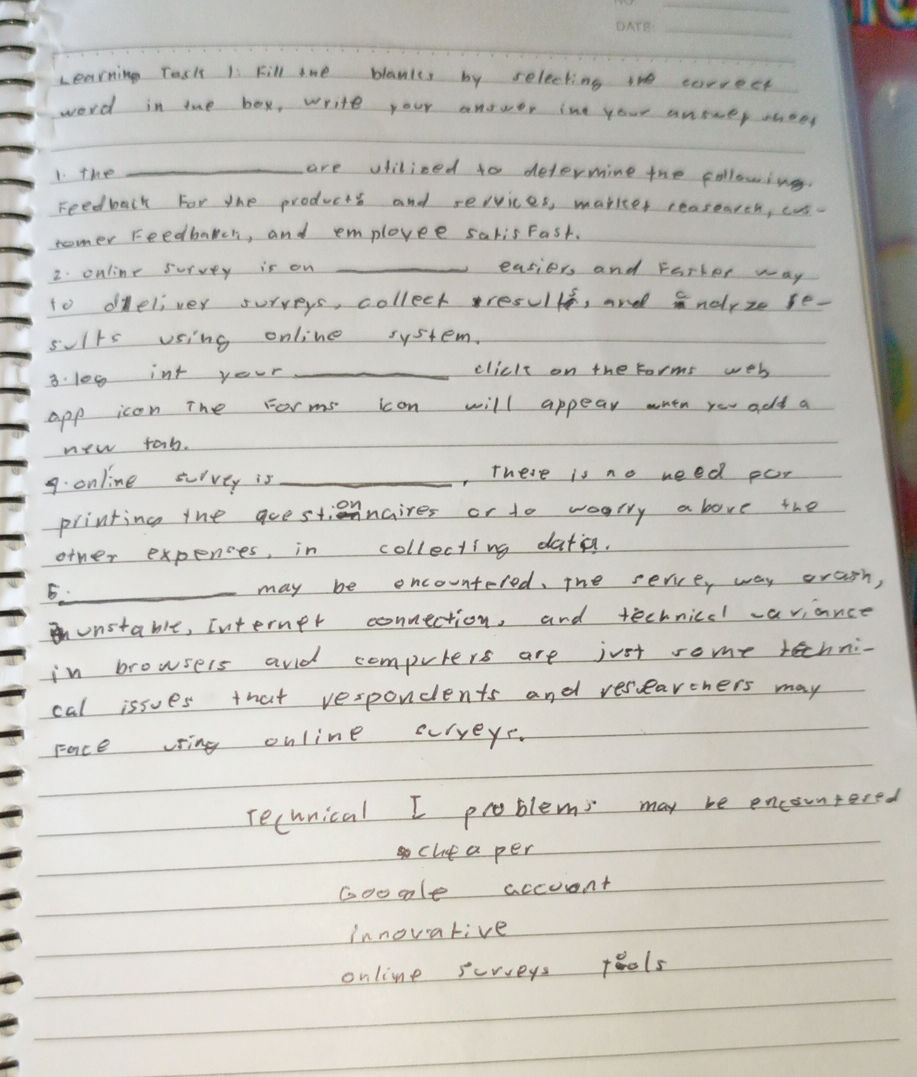 DATE:
Learning Task 1: Fill the blanks by selecting the correct
word in the box, write your answer ine your answer sheet
1. the ____________ are utilized to determine the following.
Feedback For the products and services, market reasearch, cus-
tomer Feedbakch, and employee satisFast.
2. online survey is on ____________ easier, and Faster way
to deliver surveys, collect results, and analyze re-
sults using online system.
3. log int your ____________ click on the Forms web
app icon The Forms icon will appear when you add a
new tab.
4. online survey is ____________, There is no need for
printing the questionnaires or to woorry above the
other expenses, in collecting data.
5. ____________ may be encountered, The server, way crash,
unstable, Internet connection, and technical variance
in browsers avid computers are just some techni-
cal issues that respondents and researchers may
Face using online surveys.
Technical I problems may be encountered
cheaper
Google account
innovative
online surveys tools